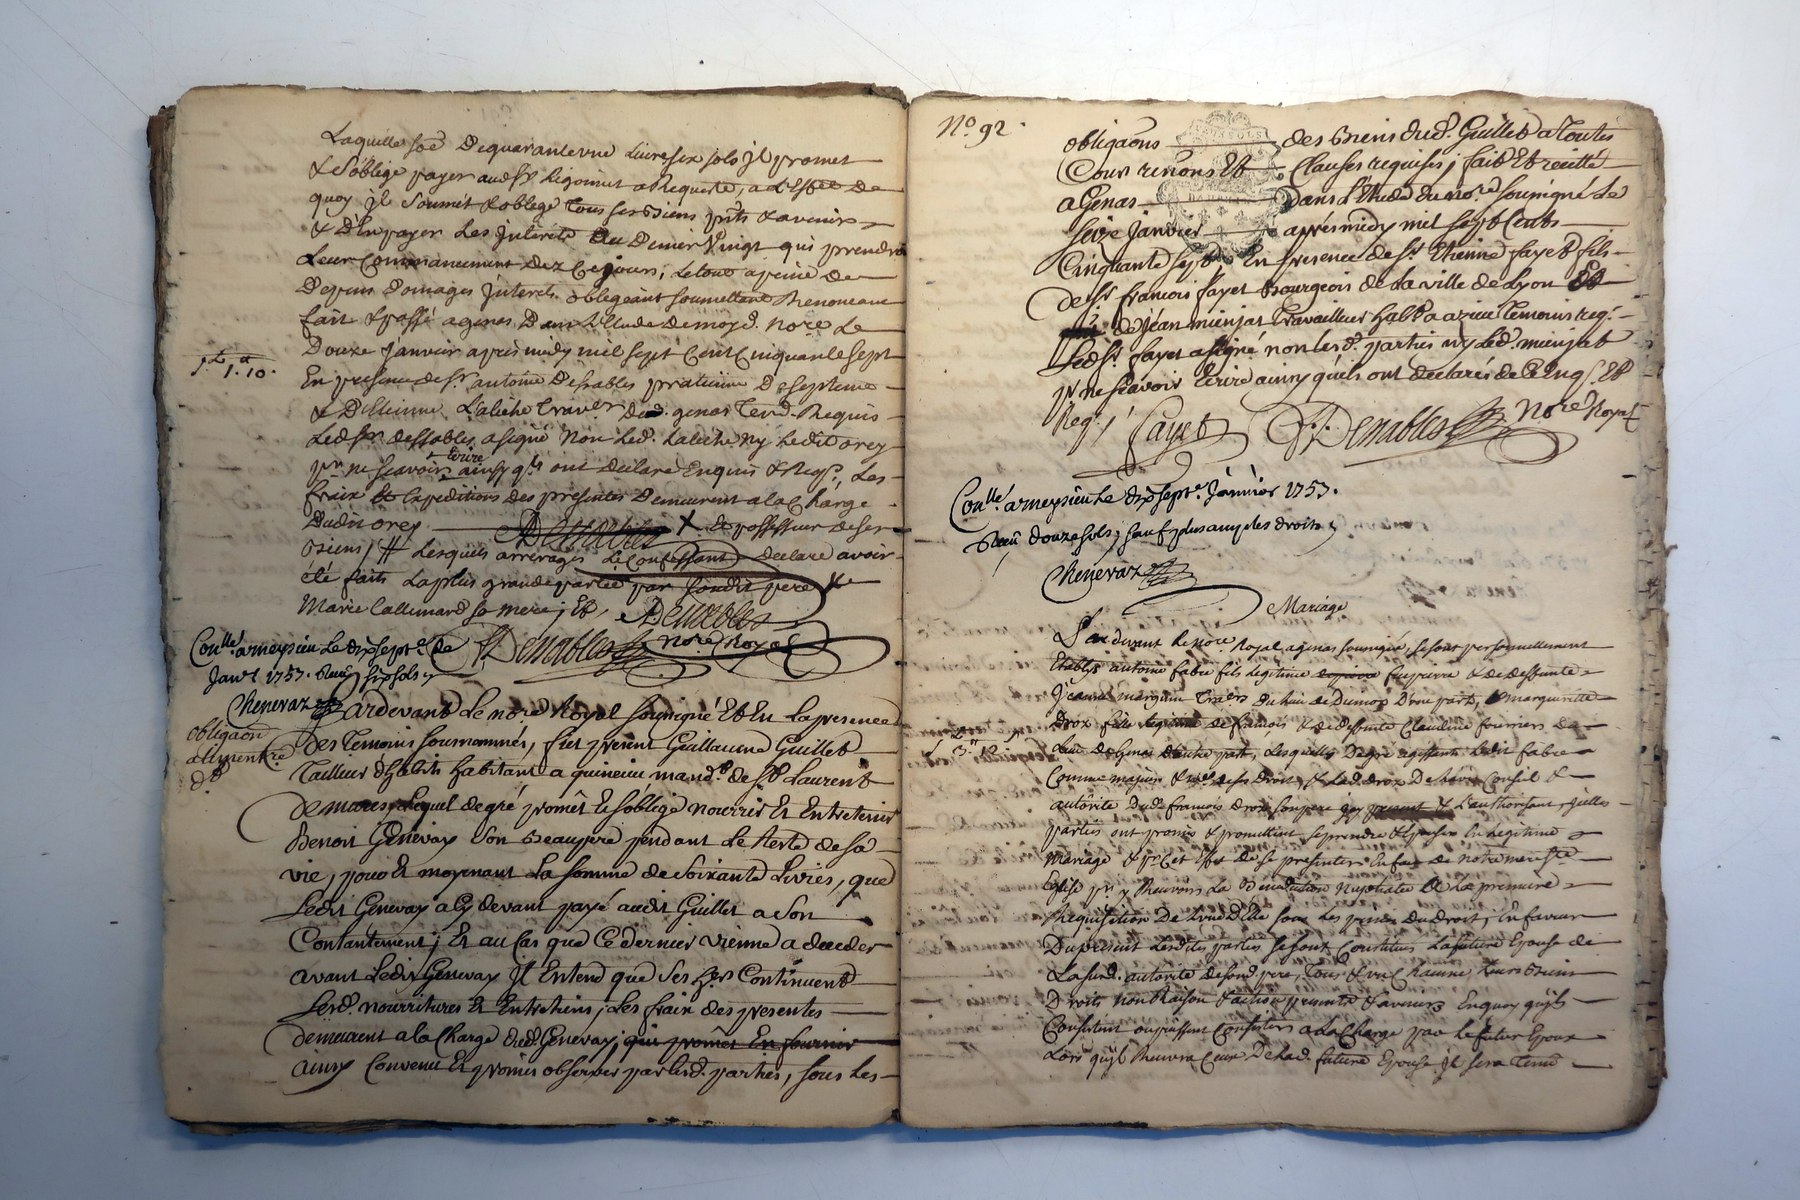 Laquille soê de quarante une Livre six sols jl promet
& s'oblige payer aud. Sr. Rigoimet a Requeste, a L'effet de
quoy jl soumet & oblege tous ses biens pnts & avenir
& d'En payer les Interets au Denier Vingt qui prendra
leur Commancement dez Ce jour; Le tout a peine de
Depuis Domages Interets obligeant soumettant Renoncant
fait & passé a genas Dans L'Etude de moyd. Nore. Le
Douze janvier apres midy mil sept Cent Cinquante sept
En presence de Sr. antoine Desables praticien De septeme
& d'Etienne Laleche Traver. dud. genas Temd. Requis
Led. Sr. dessables a signé Non Led. Laleche ny Ledit orey
pr. ne scavoir Ecrire ainsy qls. ont déclaré Enquis & Reqs., Les
fraix & Expeditions des presentes Demeurent a la Charge
Dudit orey Denables X & possesseur de ses
biens, # Lesquels arrérages Le Confessant declare avoir
été faits La plus grande partie par sondit pere &
Marie Callemard sa mere; Et, Denables
Denables Nore. Royal
1.10.
Conlle. a meysieu Le dix sept. de
Janr. 1757. Receu six sols
Chenevaz
obligaôn
alimentre
d.
Pardevant Le nore. Royal soussigné Et En La presence
des Temoins sousnommés, fut present Guillaume Guillet
Tailleur d'habits habitant a quineieu mandt. de St. Laurent
de mures, Lequel de gré promêt Et s'oblige nourrir Et Entretenir
Benoit Genevay son Beaupere pendant Le Reste de sa
vie, pour Et moyenant La somme de Soixante Livres, que
Ledit Genevay a Cy devant payé audit Guillet a son
Contantement; Et au Cas que Ce dernier vienne a deceder
avant Ledit Genevay jl Entend que ses hrs. Continuent
Lesd. nourritures Et Entretiens, Les fraix des presentes
demeurent a la Charge dud. Genevay, qui promêt En fournir
ainsy Convenu Et promis observer par Lesd. parties, sous Les
No. 92.
obligaôns des biens dud. Guillet a Toutes
Cour renôns Et Clauses requises, fait Et recitté
a Genas Dans L'Etude du nore. soussigné Le
seize janvier apres midy mil sept Cents
Cinquante sept, En presence de Sr. Etienne fayet fils
de Sr. francois fayet Bourgeois de La ville de Lyon Et
de jean mienjat Travailleur habt. a azieu Temoins req.
Led. Sr. fayet a signé non Lesd. parties ny Led. mienjat
pr. ne scavoir Ecrire ainsy qu'els ont déclarés de Ce Enqs. Et
Reqs. Fayet Denables Nore. Royal
Conllé. a meysieu Le dix sept. Janvier 1757.
Receu douze sols, sauf plus amples droits
Chenevaz
Mariage
Pardevant Le nore. Royal a genas soussigné, se sont personnellement
Etablis antoine fabre fils Legitime feu pierre & de deffunte
Jeanne marquin Travers. du lieu de Dumox D'une part, & marguerite
Drox fille Legitime de françois & de deffunte Claudine fournier du
Lieu de Genas d'autre part, Lesquelles De gré agissants Ledit fabre
Comme majeur & mtre. de ses droits, & Lad. drox De L'avis Conseil &
autôrité Dud. francois drox son pere & L'authorisant, jcelles
parties ont promis & promettent se prendre & Epouser En Legitime
mariage & pr. Cet effet de se presenter En face de notre mere Ste.
Eglise pr. y Recevoir La Benediction Nuptiale Et La premiere
Requisition De L'une d'Elle sous Les peines du droit; En faveur
Du present Lesdites parties se sont Constitués La future Epouse de
La susd. autorité de sond. pere, Tous & un Chacune Leurs Biens
Droits nom Raison & action presents & avenirs En quoy quils
Consistent ou puissent Consister a La Charge par Le futur Epoux
Lors quil Recevra Ceux De Lad. future Epouse jl sera Tenu